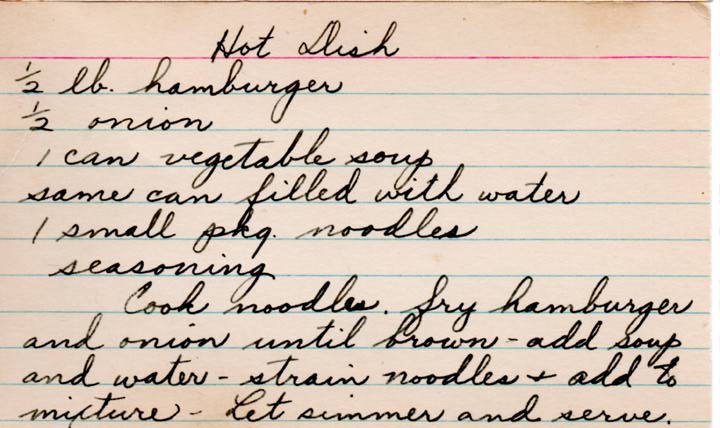 Hot Dish
½ lb. hamburger
½ onion
1 can vegetable soup
same can filled with water
1 small pkg. noodles
seasoning
Cook noodles. Fry hamburger
and onion until brown - add soup
and water - strain noodles + add to
mixture - Let simmer and serve.